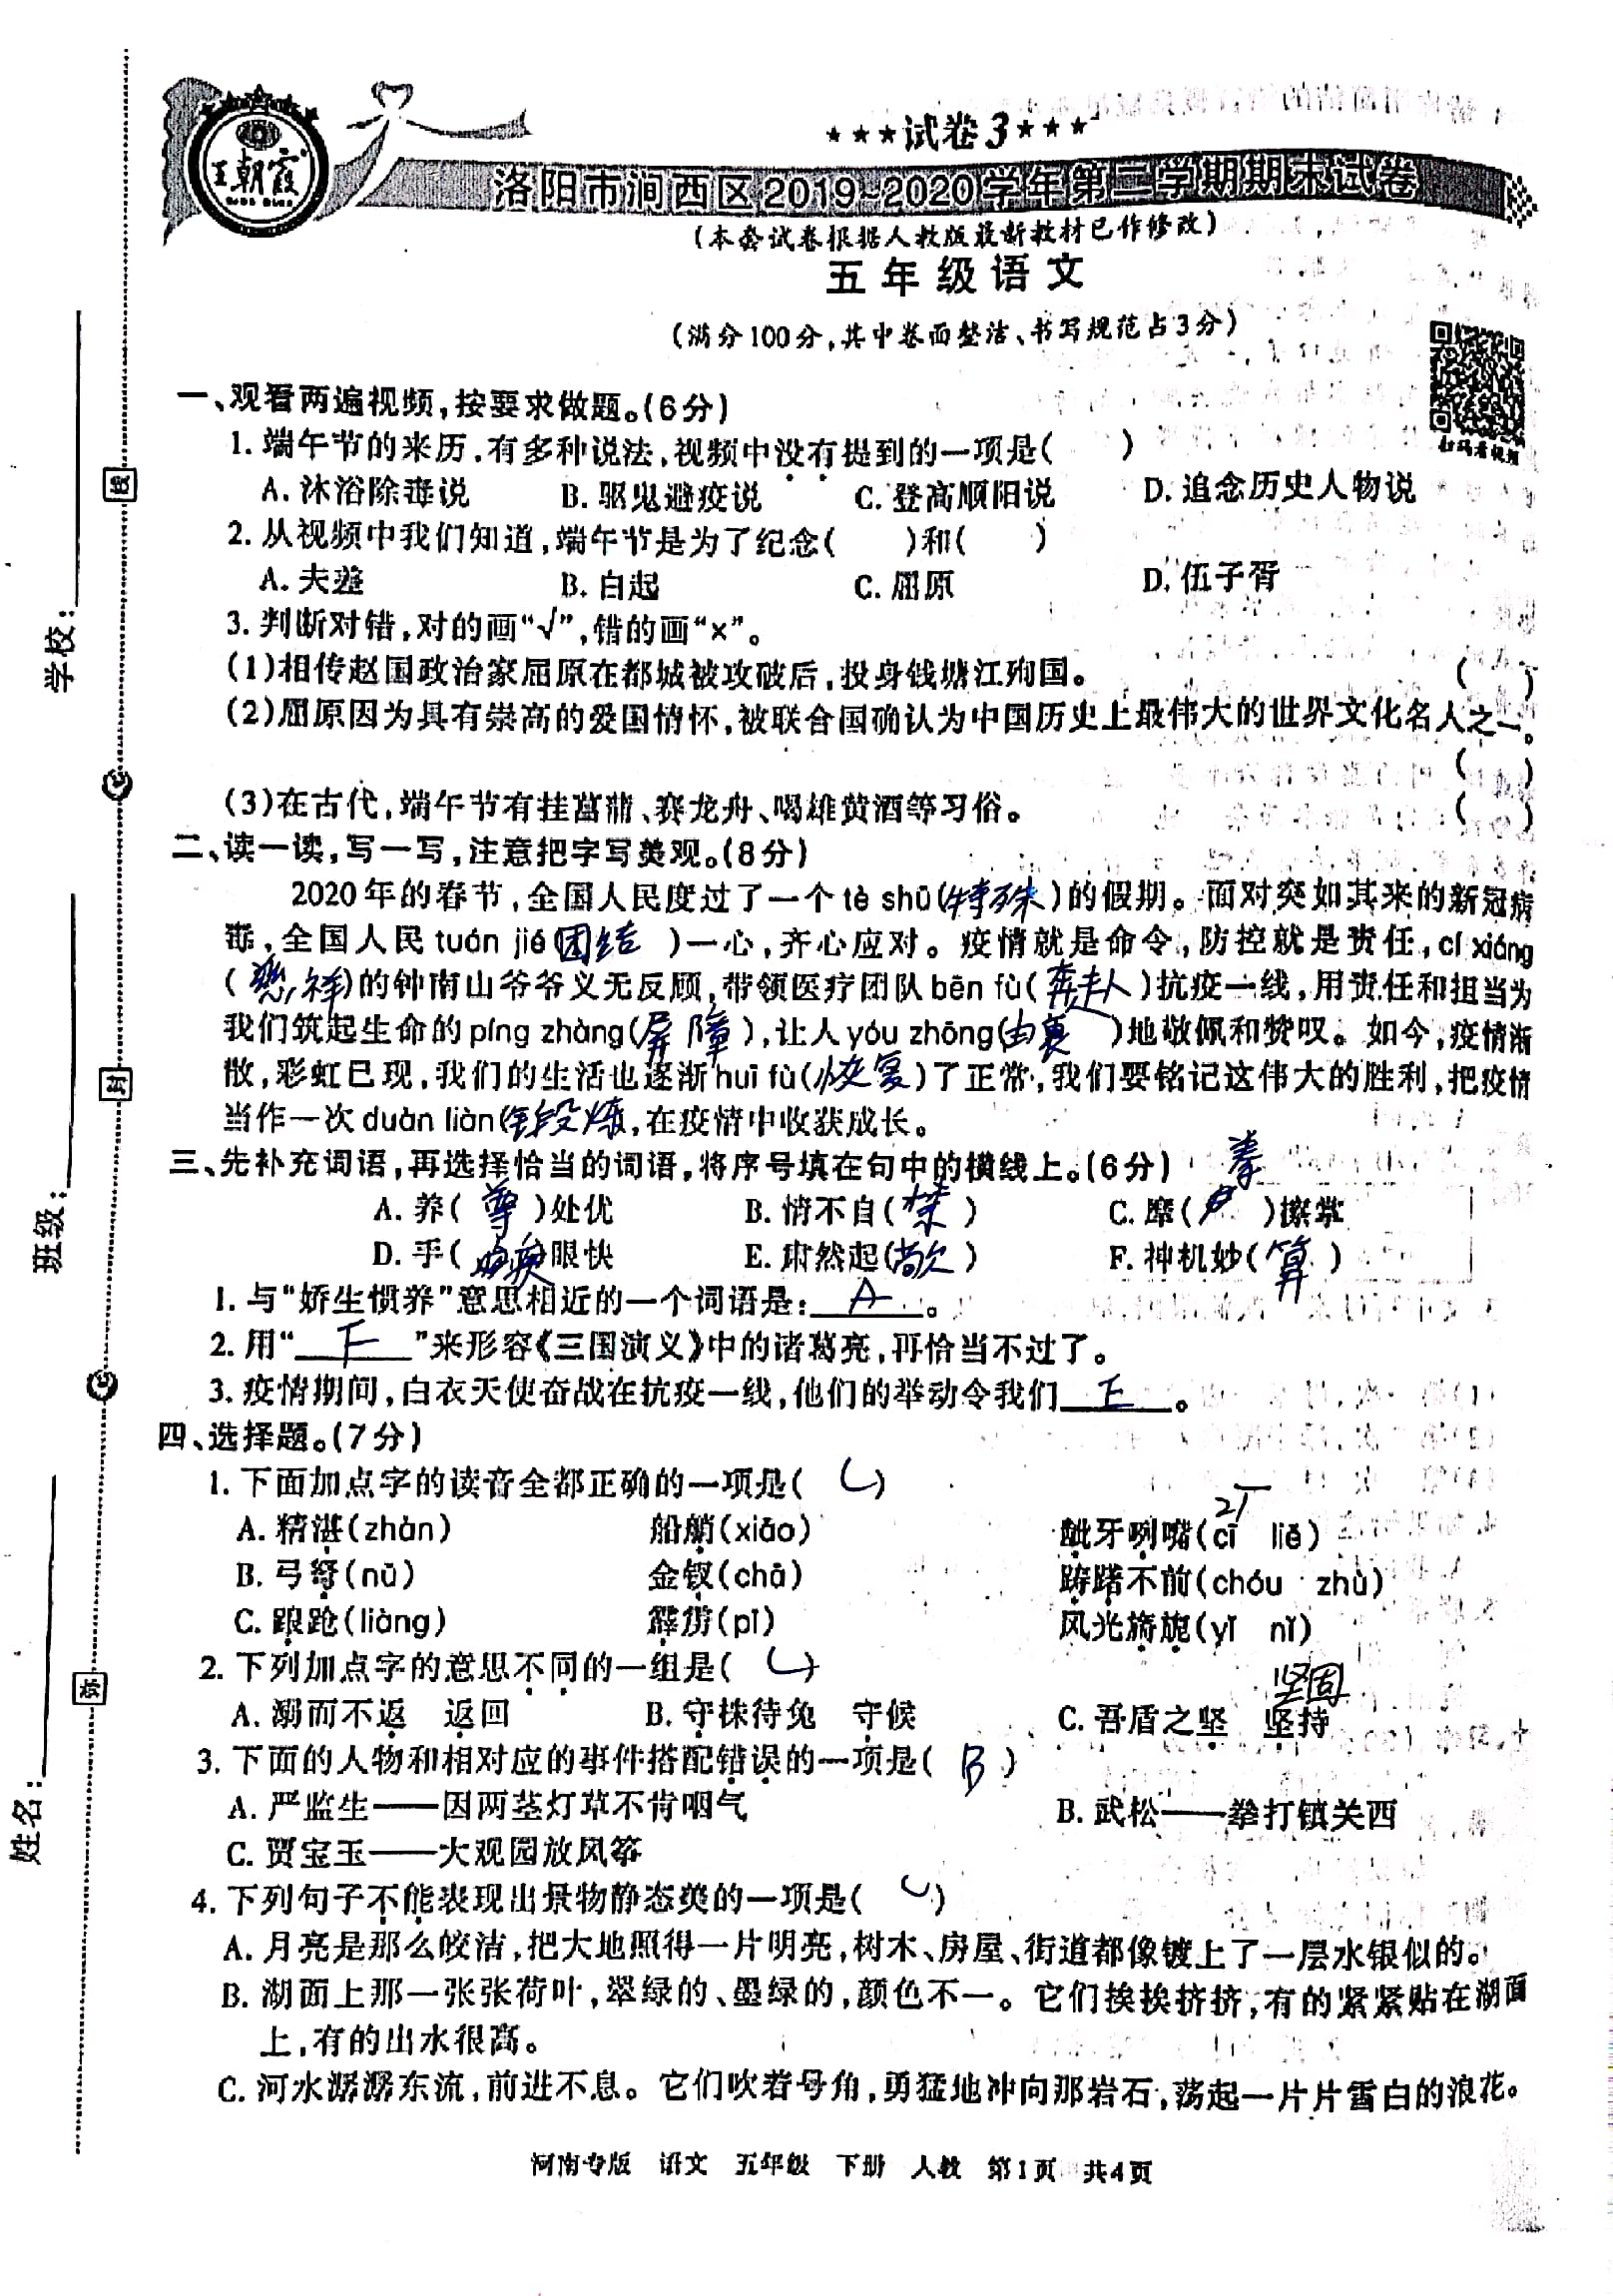 ★★★试卷3★★★
王朝霞
洛阳市涧西区2019~2020学年第二学期期末试卷
(本套试卷根据人教版最新教材已作修改)
五年级语文
(满分100分,其中卷面整洁、书写规范占3分)
扫码看视频
学校:
班级:
姓名:
线
封
密
一、观看两遍视频,按要求做题。(6分)
1. 端午节的来历,有多种说法,视频中没有提到的一项是( )
A. 沐浴除毒说 B. 驱鬼避疫说 C. 登高顺阳说 D. 追念历史人物说
2. 从视频中我们知道,端午节是为了纪念( )和( )
A. 夫差 B. 白起 C. 屈原 D. 伍子胥
3. 判断对错,对的画“√”,错的画“×”。
(1)相传赵国政治家屈原在都城被攻破后,投身钱塘江殉国。 ( )
(2)屈原因为具有崇高的爱国情怀,被联合国确认为中国历史上最伟大的世界文化名人之一。
( )
(3)在古代,端午节有挂菖蒲、赛龙舟、喝雄黄酒等习俗。 ( )
二、读一读,写一写,注意把字写美观。(8分)
2020年的春节,全国人民度过了一个tè shū(特殊)的假期。面对突如其来的新冠病
毒,全国人民tuán jié(团结)一心,齐心应对。疫情就是命令,防控就是责任,cí xiáng
(慈祥)的钟南山爷爷义无反顾,带领医疗团队bēn fù(奔赴)抗疫一线,用责任和担当为
我们筑起生命的píng zhàng(屏障),让人yóu zhōng(由衷)地敬佩和赞叹。如今,疫情渐
散,彩虹已现,我们的生活也逐渐huī fù(恢复)了正常,我们要铭记这伟大的胜利,把疫情
当作一次duàn liàn(锻炼),在疫情中收获成长。
三、先补充词语,再选择恰当的词语,将序号填在句中的横线上。(6分)
A. 养(尊)处优 B. 情不自(禁) C. 摩(拳)擦掌
D. 手(疾)眼快 E. 肃然起(敬) F. 神机妙(算)
1. 与“娇生惯养”意思相近的一个词语是:A。
2. 用“F”来形容《三国演义》中的诸葛亮,再恰当不过了。
3. 疫情期间,白衣天使奋战在抗疫一线,他们的举动令我们E。
四、选择题。(7分)
1. 下面加点字的读音全都正确的一项是( C )
A. 精湛(zhàn) 船艄(xiāo) 龇牙咧嘴(cī liě)
B. 弓弩(nǔ) 金钗(chā) 踌躇不前(chóu zhù)
C. 踉跄(liàng) 霹雳(pī) 风光旖旎(yǐ nǐ)
2. 下列加点字的意思不同的一组是( C )
坚固
A. 溯而不返 返回 B. 守株待兔 守候 C. 吾盾之坚 坚持
3. 下面的人物和相对应的事件搭配错误的一项是( B )
A. 严监生——因两茎灯草不肯咽气 B. 武松——拳打镇关西
C. 贾宝玉——大观园放风筝
4. 下列句子不能表现出景物静态美的一项是( C )
A. 月亮是那么皎洁,把大地照得一片明亮,树木、房屋、街道都像镀上了一层水银似的。
B. 湖面上那一张张荷叶,翠绿的、墨绿的,颜色不一。它们挨挨挤挤,有的紧紧贴在湖面
上,有的出水很高。
C. 河水潺潺东流,前进不息。它们吹着号角,勇猛地冲向那岩石,荡起一片片雪白的浪花。
河南专版 语文 五年级 下册 人教 第1页 共4页